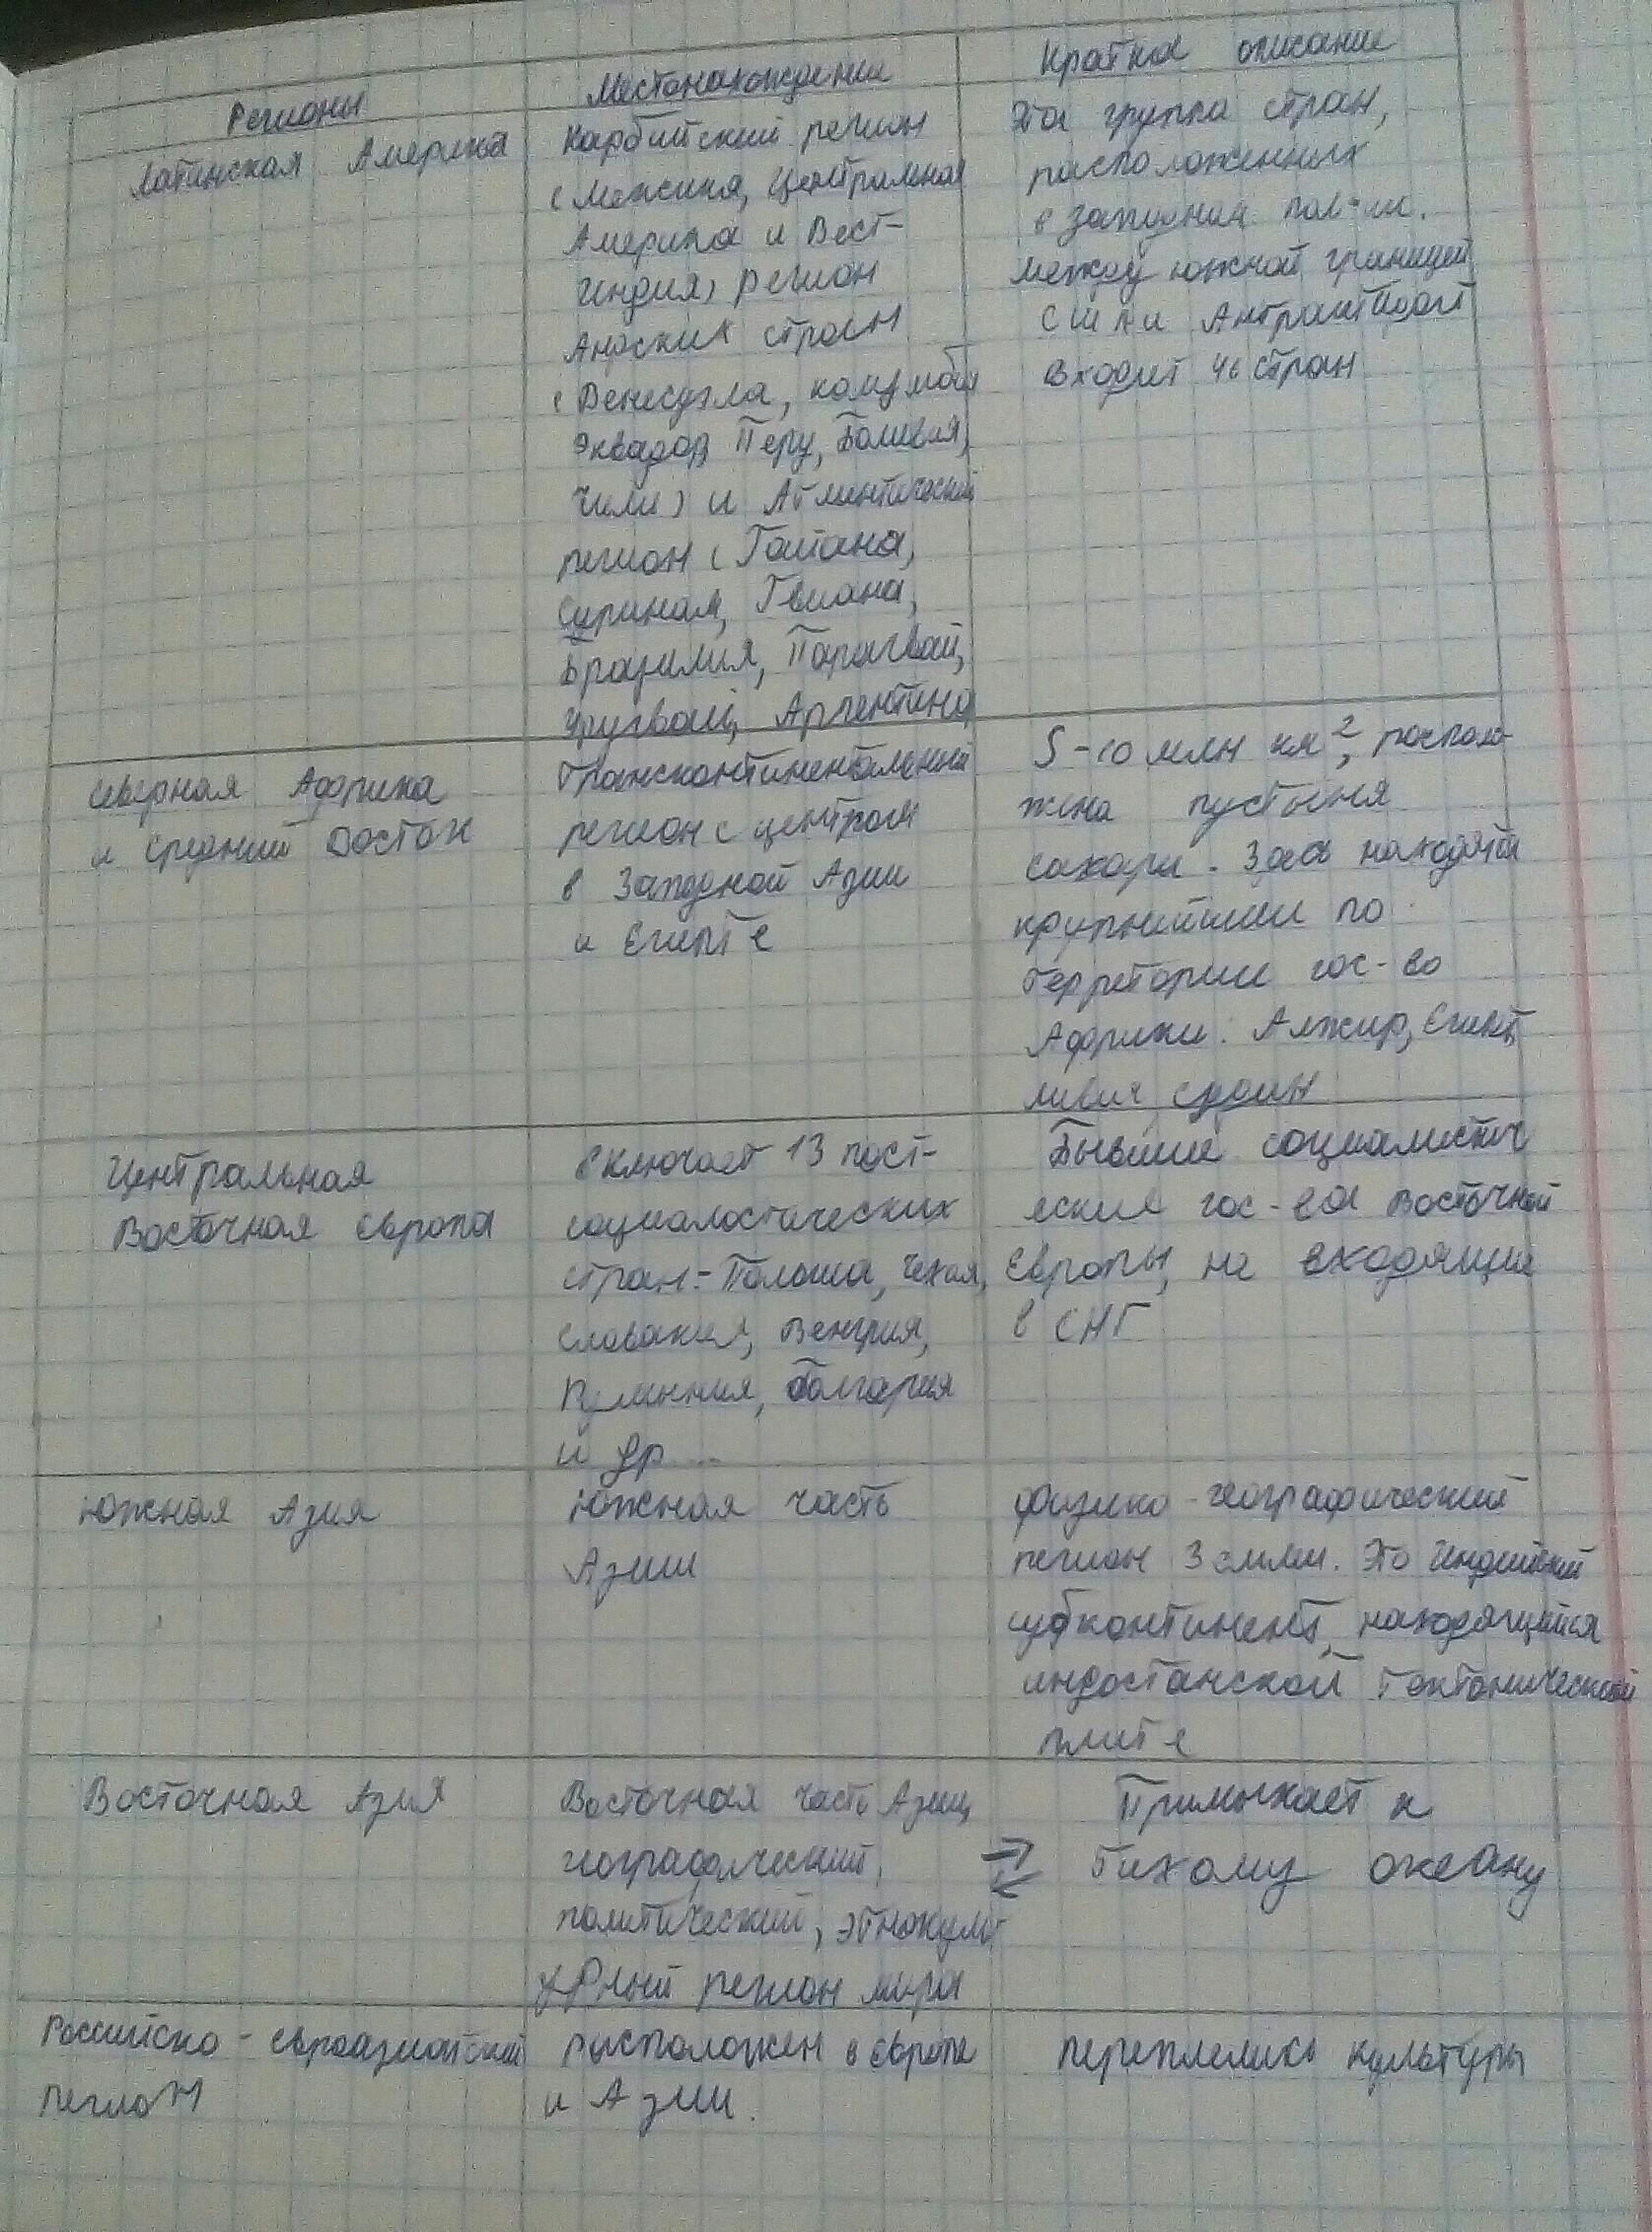 Регионы
Местонахождение
Кратка описание
Латинская Америка
Карбийский регион
(Мексика, Центральная
Америка и Вест-
Индия) регион
Андских стран
(Венесуэла, колумбия
Эквадор Перу, Боливия,
Чили) и Атлантический
регион (Гайана,
Суринам, Гвиана,
Бразилия, Парагвай,
Уругвай, Аргентина
Эта группа стран,
расположенных
в западном пол-ии.
между южной границей
США и Антрактидой
Входит 46 стран
Северная Африка
и Средний Восток
Трансконтинентальный
регион с центром
в Западной Азии
и Египте
S-10 млн км², располо-
жена пустыня
сахара. Здесь находятся
крупнейшеи по
территории гос-во
Африки: Алжир, Египет,
ливия, судан
Центральная
Восточная Европа
включает 13 пост-
социалостических
стран:- Польша, Чехия,
Словакия, Венгрия,
Румыния, Болгария
и др...
Бывшие социалистич
еские гос-ва Восточной
Европы, не входящие
в СНГ
Южная Азия
Южная часть
Азии
физико-географический
регион Земли. Это Индийский
субконтинент, находящийся
индостанской тектонической
плите
Восточная Азия
Восточная часть Азии,
географический,
политический, этнокульт
урный регион мира
Примыкает к
Тихому океану
Российско-евроазиатский
регион
расположен в Европе
и Азии.
переплелись культуры